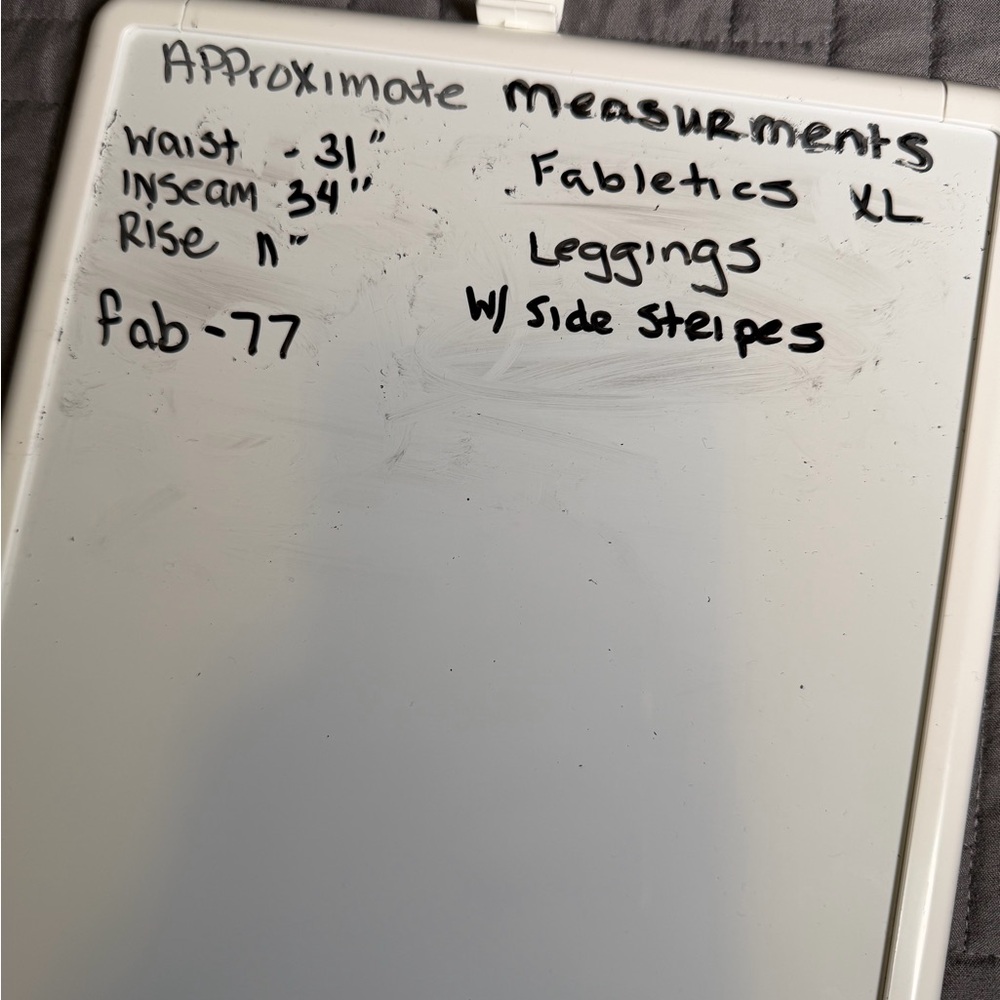 Approximate measurments
Waist - 31"
Inseam 34"
Rise 11"
fab - 77
Fabletics XL
Leggings
W/ Side Steipes